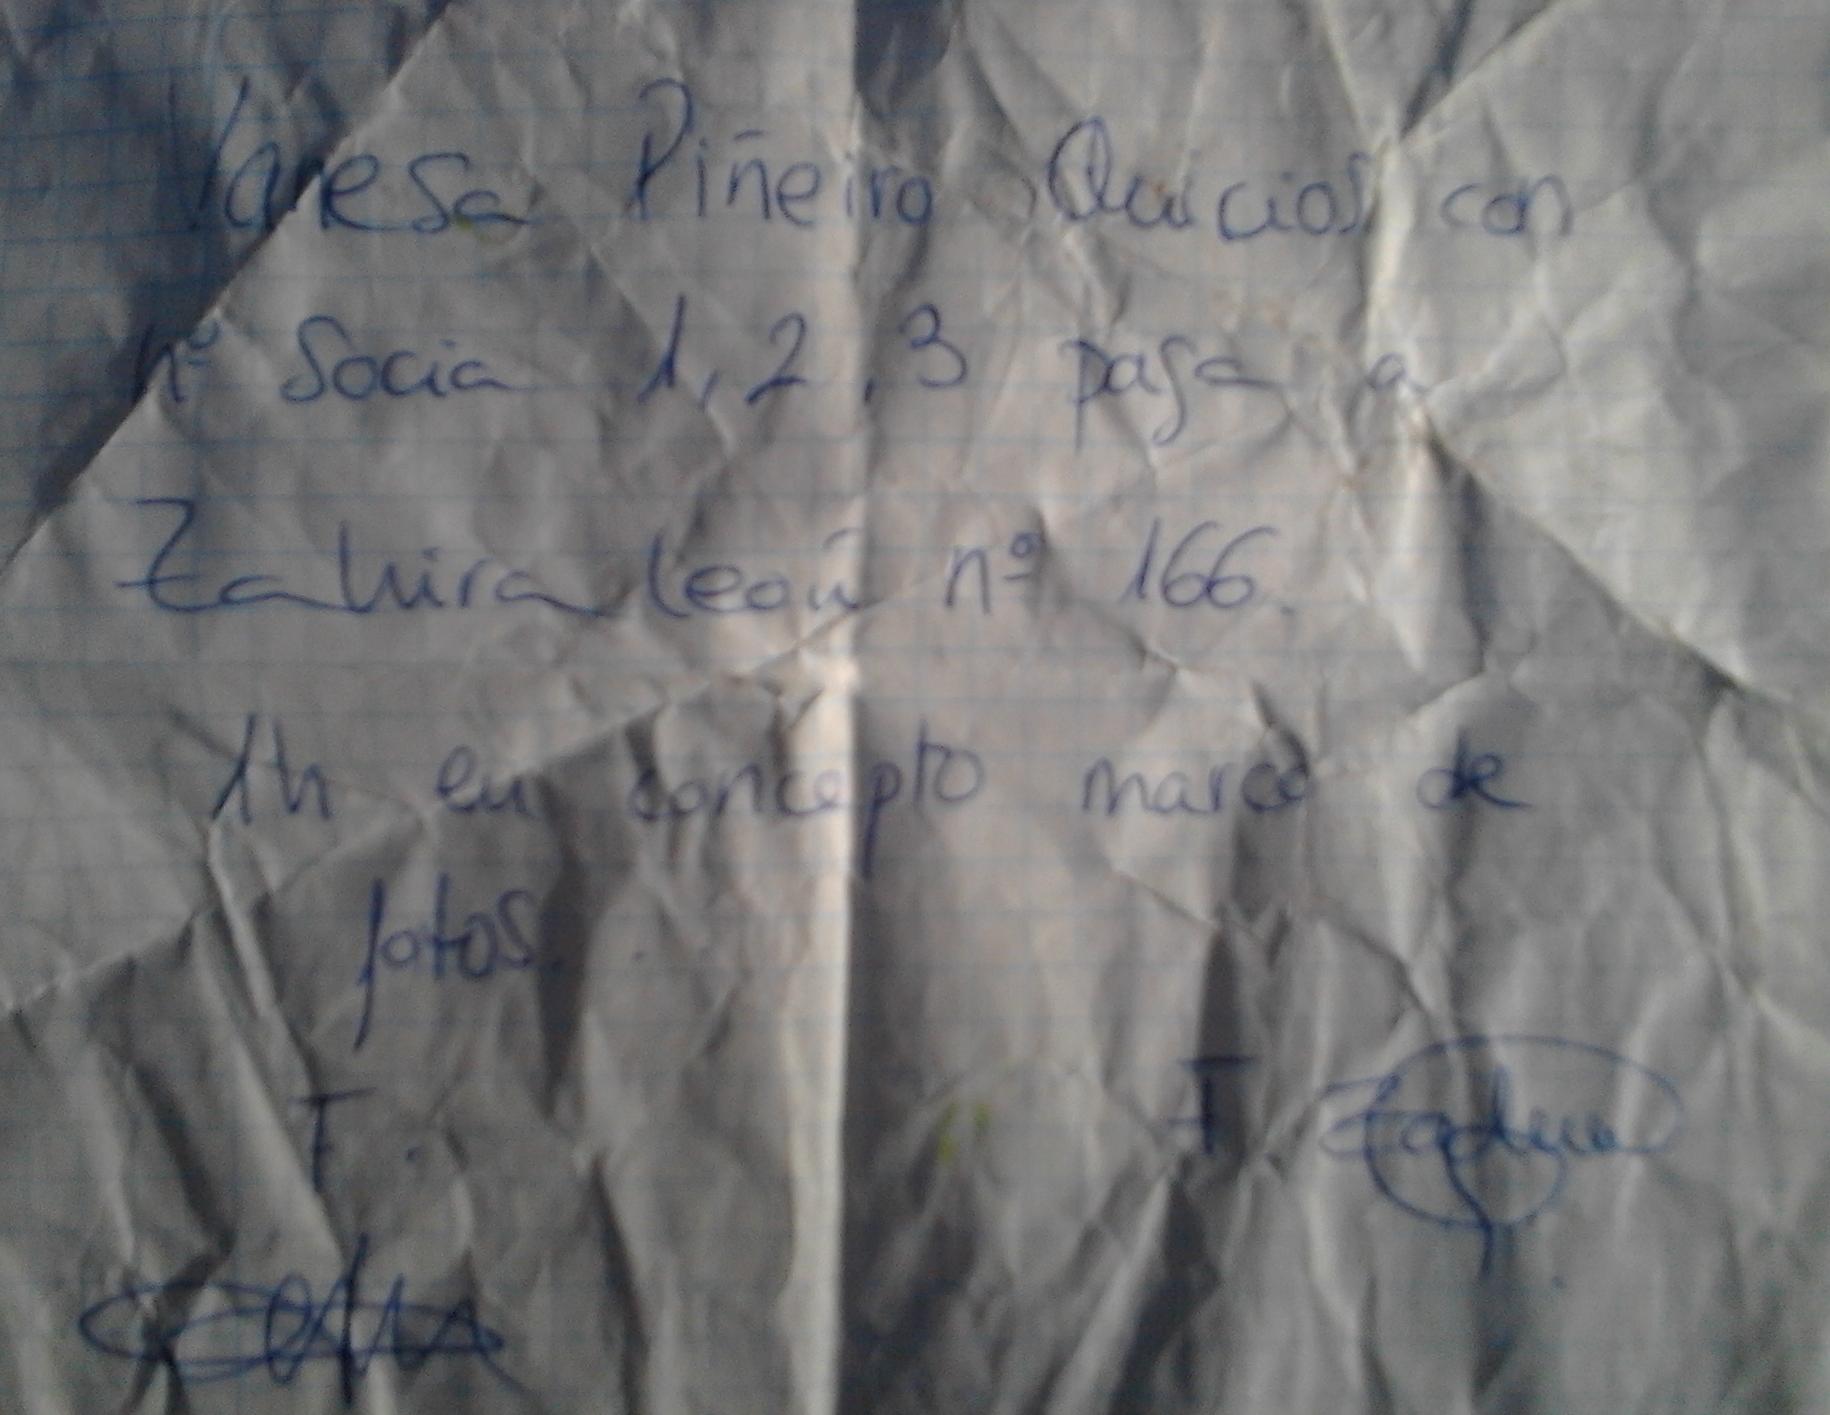 Vanesa Piñeiro Quicios con
nº Socia 1, 2, 3 pasa a
Zahira León nº 166.
1h en concepto marco de
fotos.
F.
F